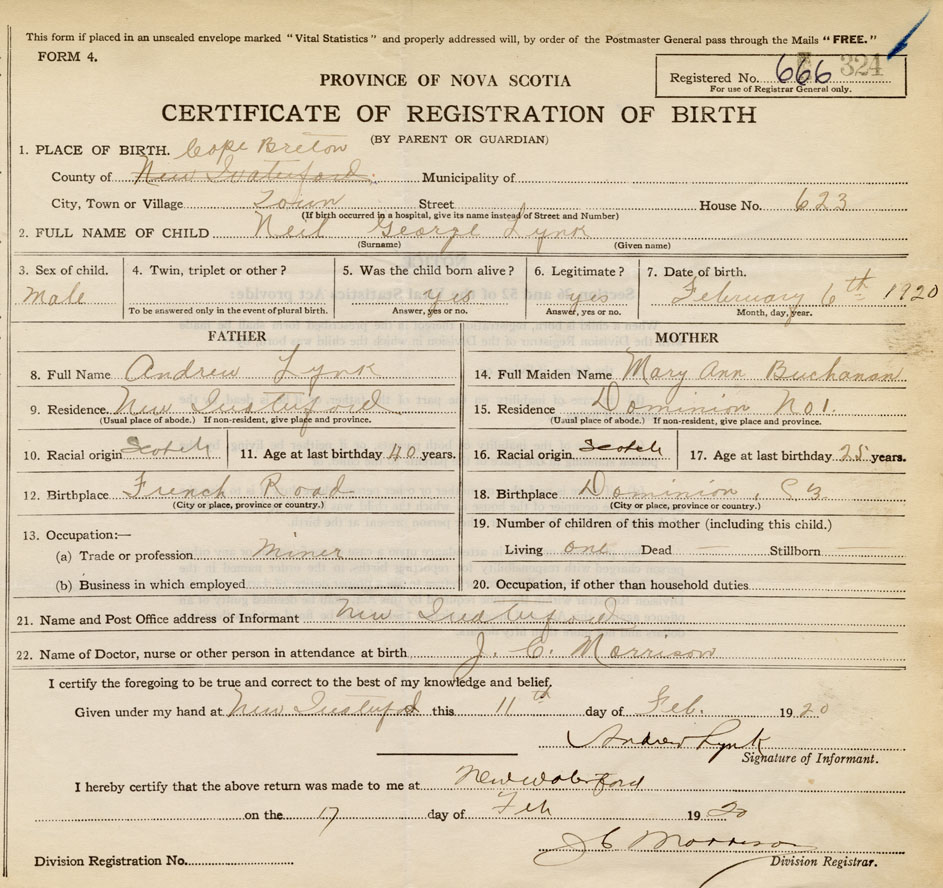 This form if placed in an unsealed envelope marked "Vital Statistics" and properly addressed will, by order of the Postmaster General pass through the Mails "FREE."
FORM 4.
PROVINCE OF NOVA SCOTIA
Registered No. 666 324
For use of Registrar General only.
CERTIFICATE OF REGISTRATION OF BIRTH
(BY PARENT OR GUARDIAN)
1. PLACE OF BIRTH. Cape Breton
County of New Waterford Municipality of
City, Town or Village Town Street House No. 623
(If birth occurred in a hospital, give its name instead of Street and Number)
2. FULL NAME OF CHILD Neil George Lynk
(Surname) (Given name)
3. Sex of child. 4. Twin, triplet or other? 5. Was the child born alive? 6. Legitimate? 7. Date of birth.
Male yes yes February 6th 1920
To be answered only in the event of plural birth. Answer, yes or no. Answer, yes or no. Month, day, year.
FATHER MOTHER
8. Full Name Andrew Lynk 14. Full Maiden Name Mary Ann Buchanan
9. Residence New Waterford 15. Residence Dominion No 1.
(Usual place of abode.) If non-resident, give place and province. (Usual place of abode.) If non-resident, give place and province.
10. Racial origin Scotch 11. Age at last birthday 40 years. 16. Racial origin Scotch 17. Age at last birthday 25 years.
12. Birthplace French Road 18. Birthplace Dominion, C B
(City or place, province or country.) (City or place, province or country.)
13. Occupation:— 19. Number of children of this mother (including this child.)
(a) Trade or profession Miner Living one Dead — Stillborn —
(b) Business in which employed 20. Occupation, if other than household duties
21. Name and Post Office address of Informant New Waterford
22. Name of Doctor, nurse or other person in attendance at birth J. C. Morrison
I certify the foregoing to be true and correct to the best of my knowledge and belief.
Given under my hand at New Waterford this 11th day of Feb. 1920
Andrew Lynk
Signature of Informant.
I hereby certify that the above return was made to me at New Waterford
on the 17 day of Feb 1920
J C Morrison
Division Registration No. Division Registrar.